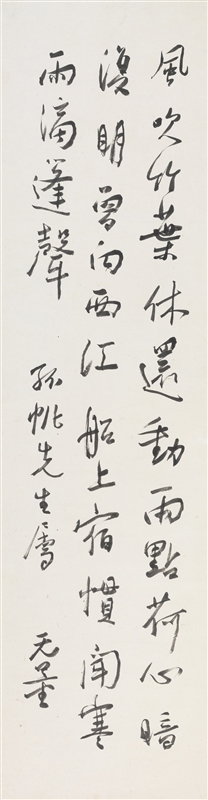 風吹竹葉休還動雨點荷心暗
復明曾向西江船上宿慣聞寒
雨滴蓬聲
孤桃先生屬
无量